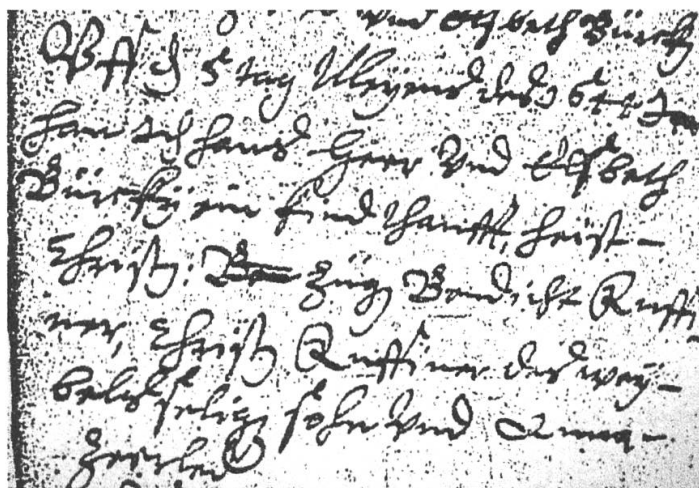 und Elsbeth Bürky
Uff den 5 tag Meyens des 1644
han Ich hans Heer. Und Elsbeth
Bürky ein kind thaufft, heist
Christ: züg, Bendicht Ruffi-
ner, Christ Ruffiner des wey-
bels selig, sohn Und Anna
Zeerleder